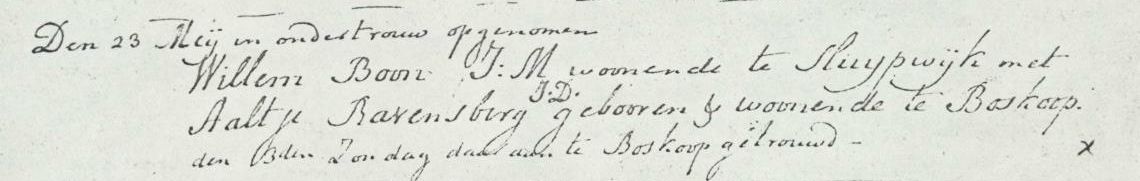 Den 23 Meij in ondertrouw opgenomen
Willem Boon J:M woonende te Sluypwijk met
Aaltje Ravensberg J.D. gebooren & woonende te Boskoop.
den 3den Zondag daar aan te Boskoop getrouwd - x